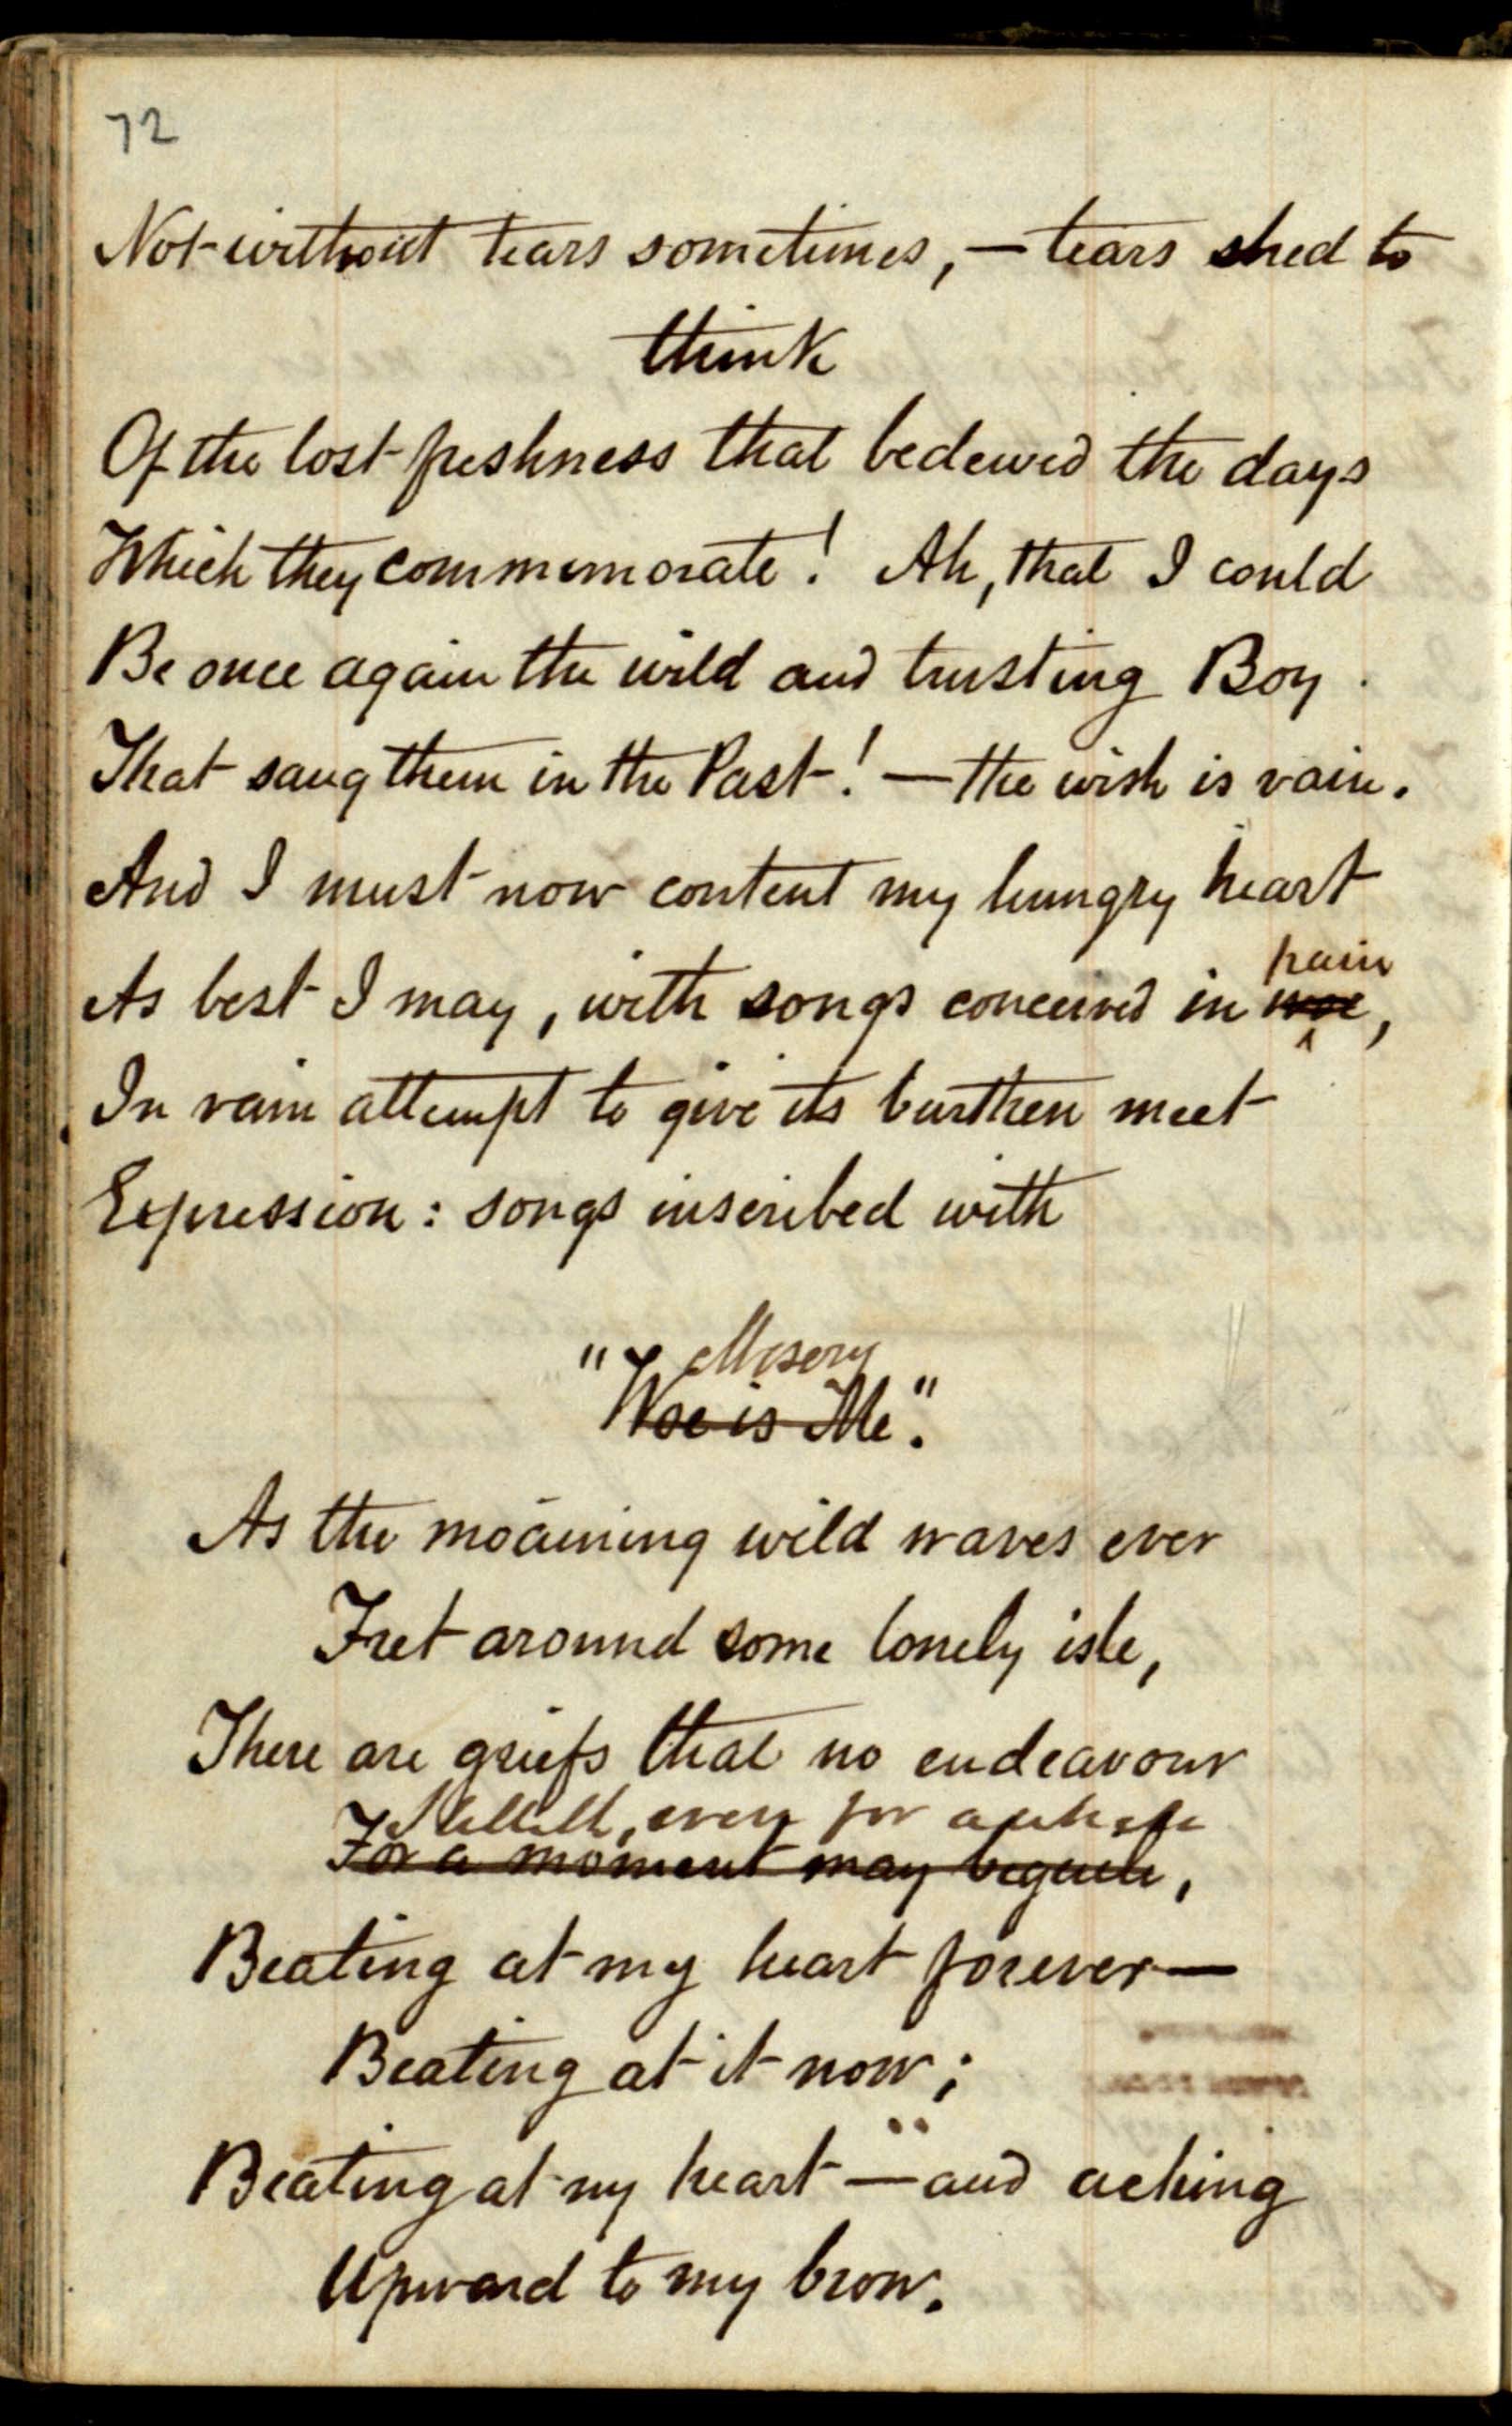 72
Not without tears sometimes, — tears shed to
think
Of the lost freshness that bedewed the days
Which they commemorate! Ah, that I could
Be once again the wild and trusting Boy
That sang them in the Past! — the wish is vain.
And I must now content my hungry heart
pain
As best I may, with songs conceived in woe,
In vain attempt to give its burthen meet
Expression: songs inscribed with
Misery
"Woe is Me".
As the moaning wild waves ever
Fret around some lonely isle,
There are griefs that no endeavour
even for a
For a moment may beguile,
Beating at my heart forever —
Beating at it now;
Beating at my heart — and aching
Upward to my brow.